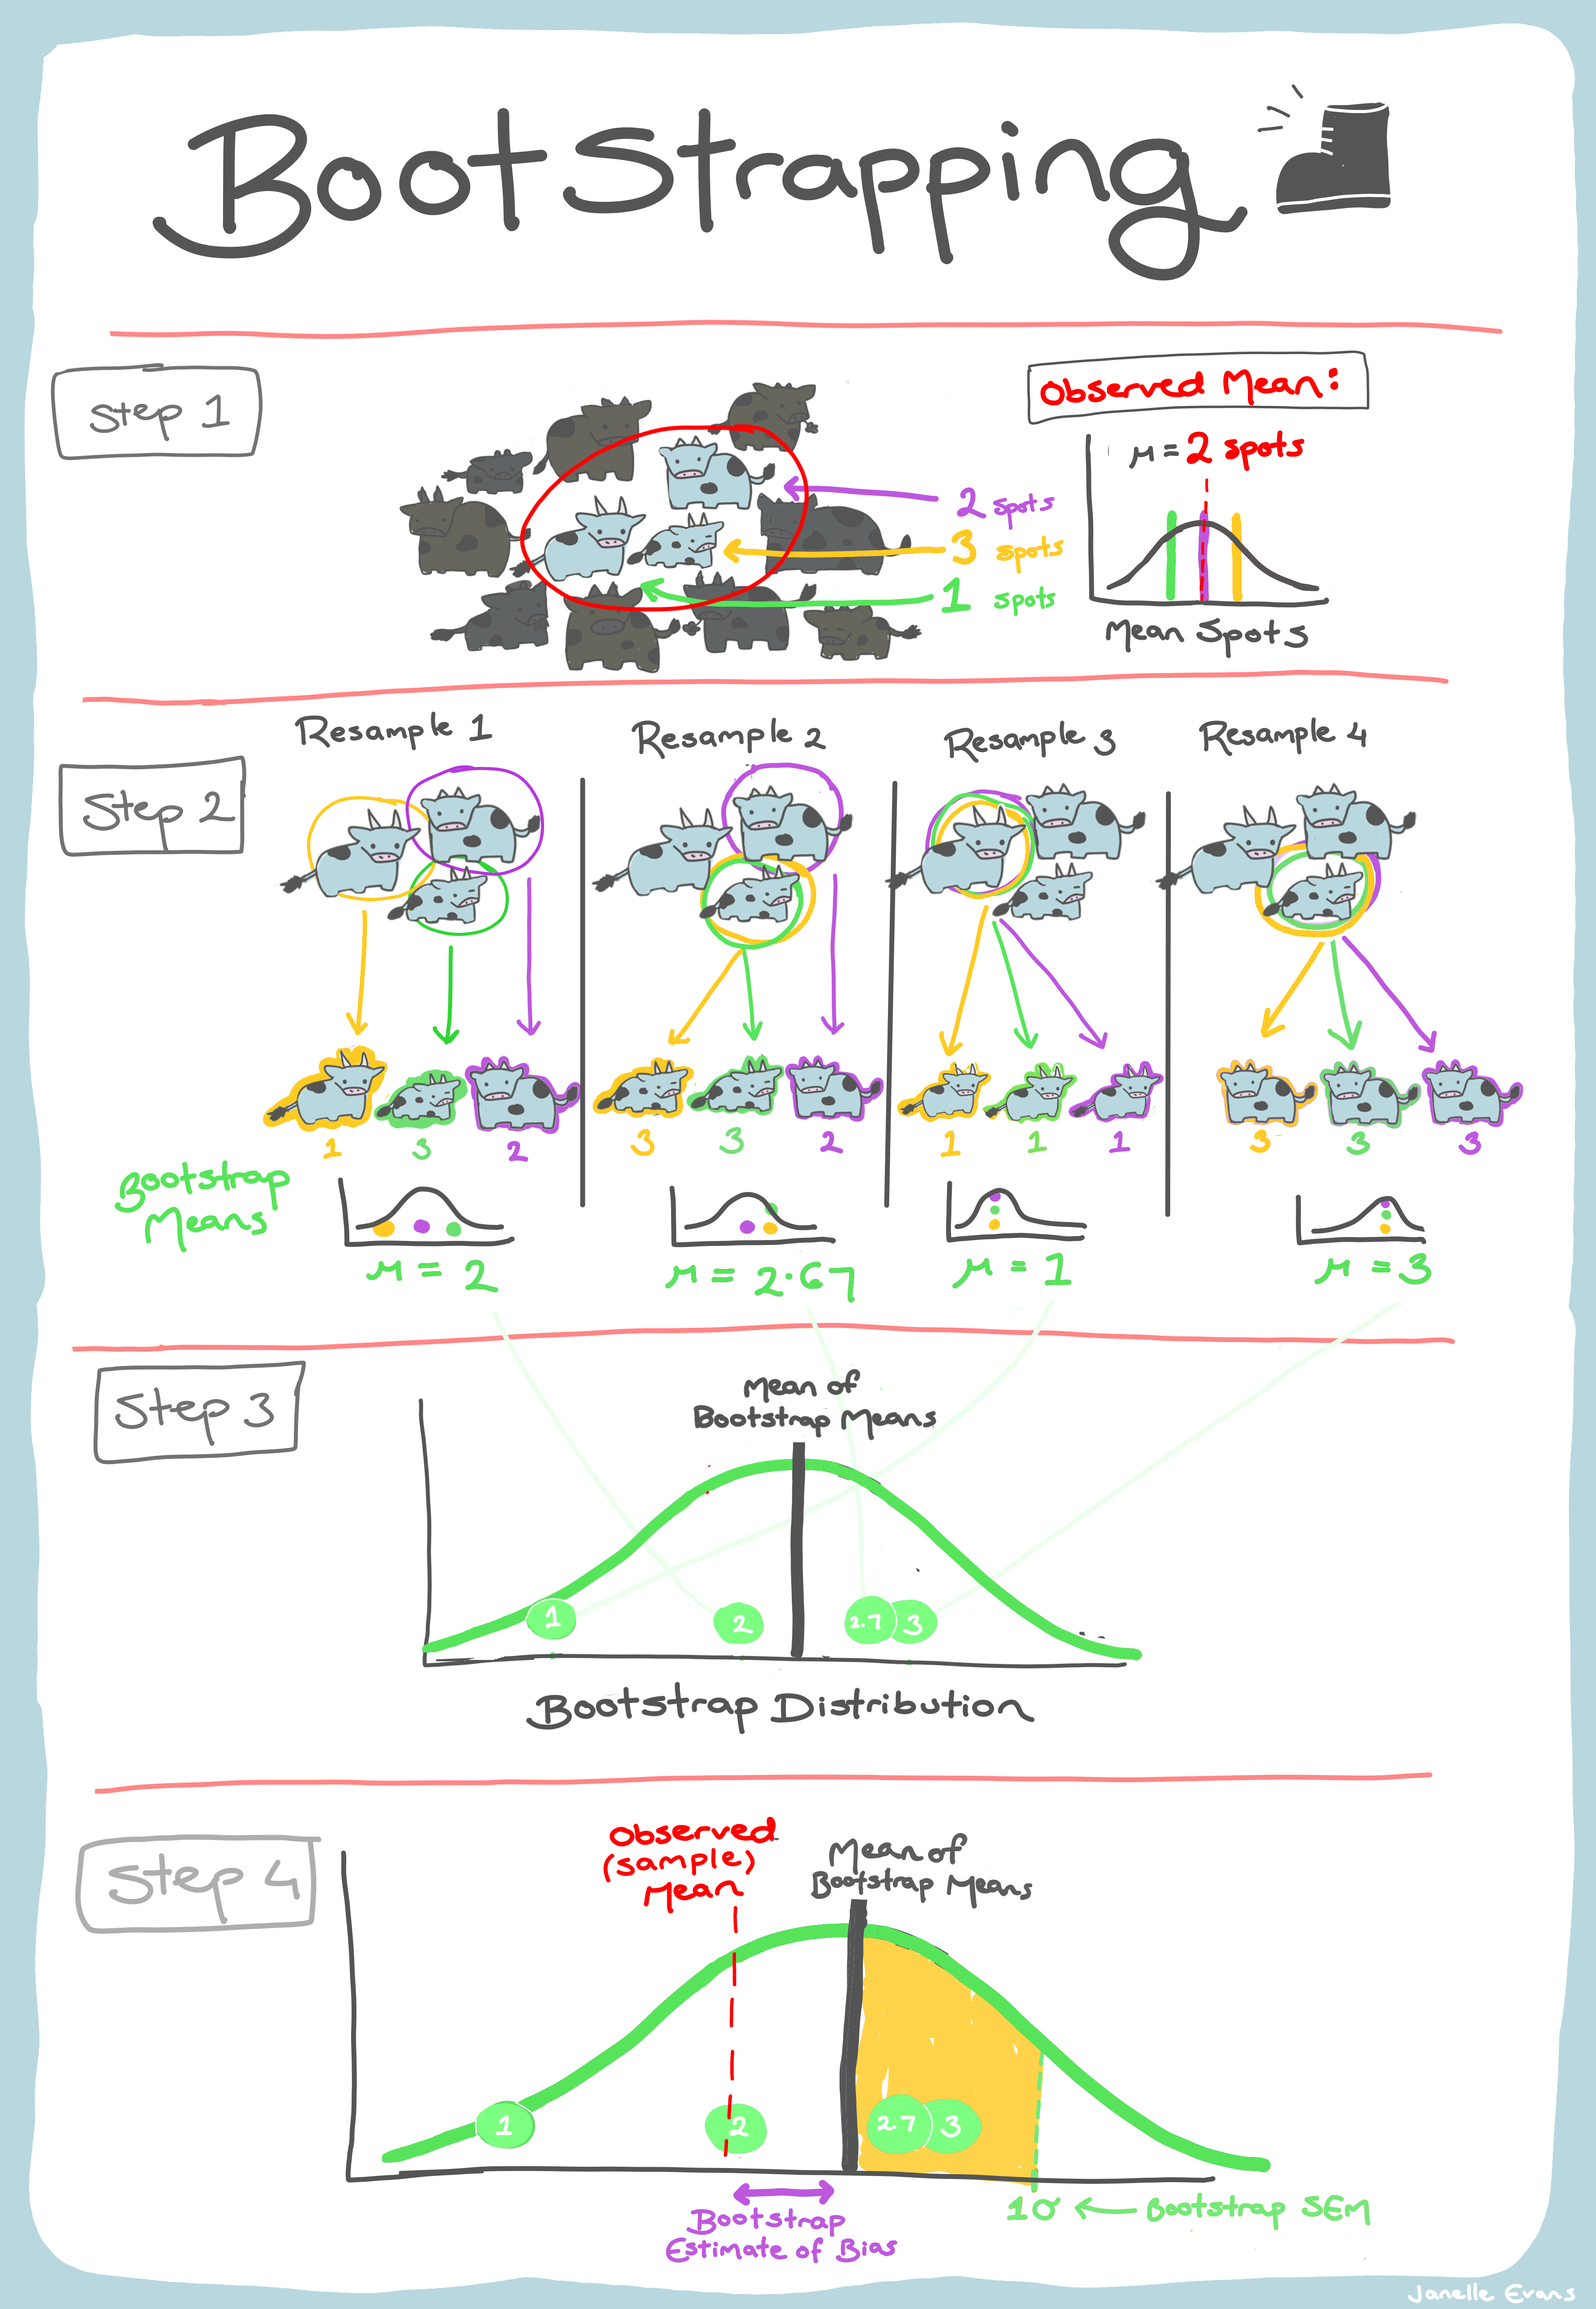 Bootstrapping
Step 1
Observed Mean:
μ = 2 spots
2 spots
3 spots
1 spots
Mean Spots
Step 2
Resample 1
Resample 2
Resample 3
Resample 4
1 3 2
3 3 2
1 1 1
3 3 3
Bootstrap
Means
μ = 2
μ = 2.67
μ = 1
μ = 3
Step 3
Mean of
Bootstrap Means
1 2 2.7 3
Bootstrap Distribution
Step 4
Observed
(sample)
Mean
Mean of
Bootstrap Means
1 2 2.7 3
1σ ← Bootstrap SEM
Bootstrap
Estimate of Bias
Janelle Evans